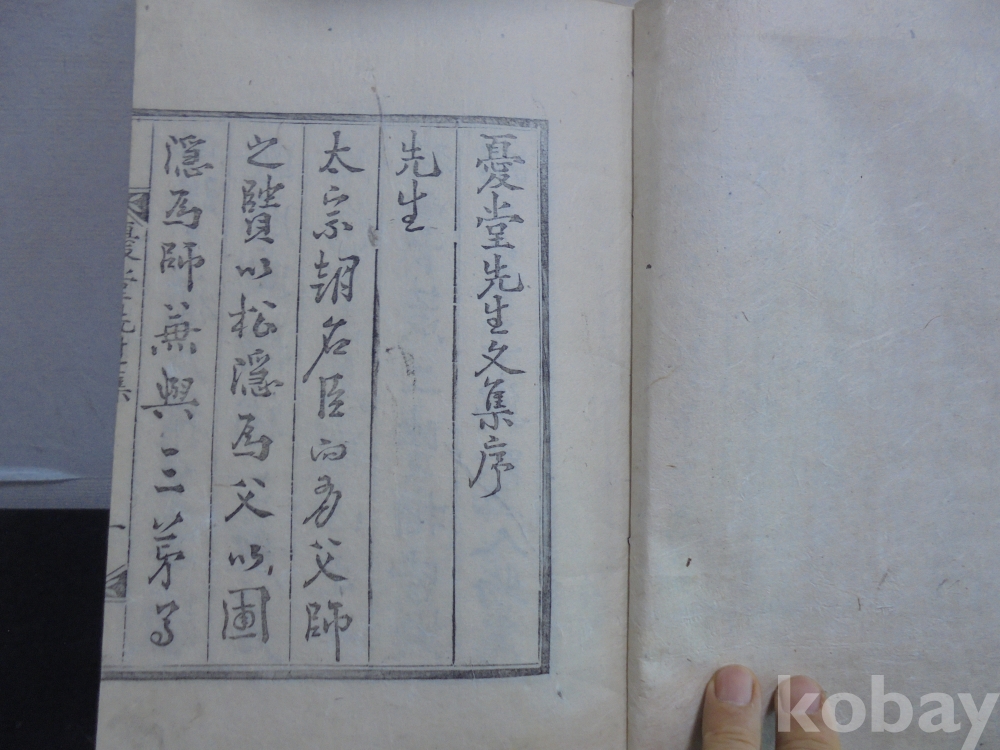 憂堂先生文集序
先生
太宗朝名臣而有父師
之賢以松隱爲父以圃
隱爲師兼與三弟
憂堂先生集
一
kobay